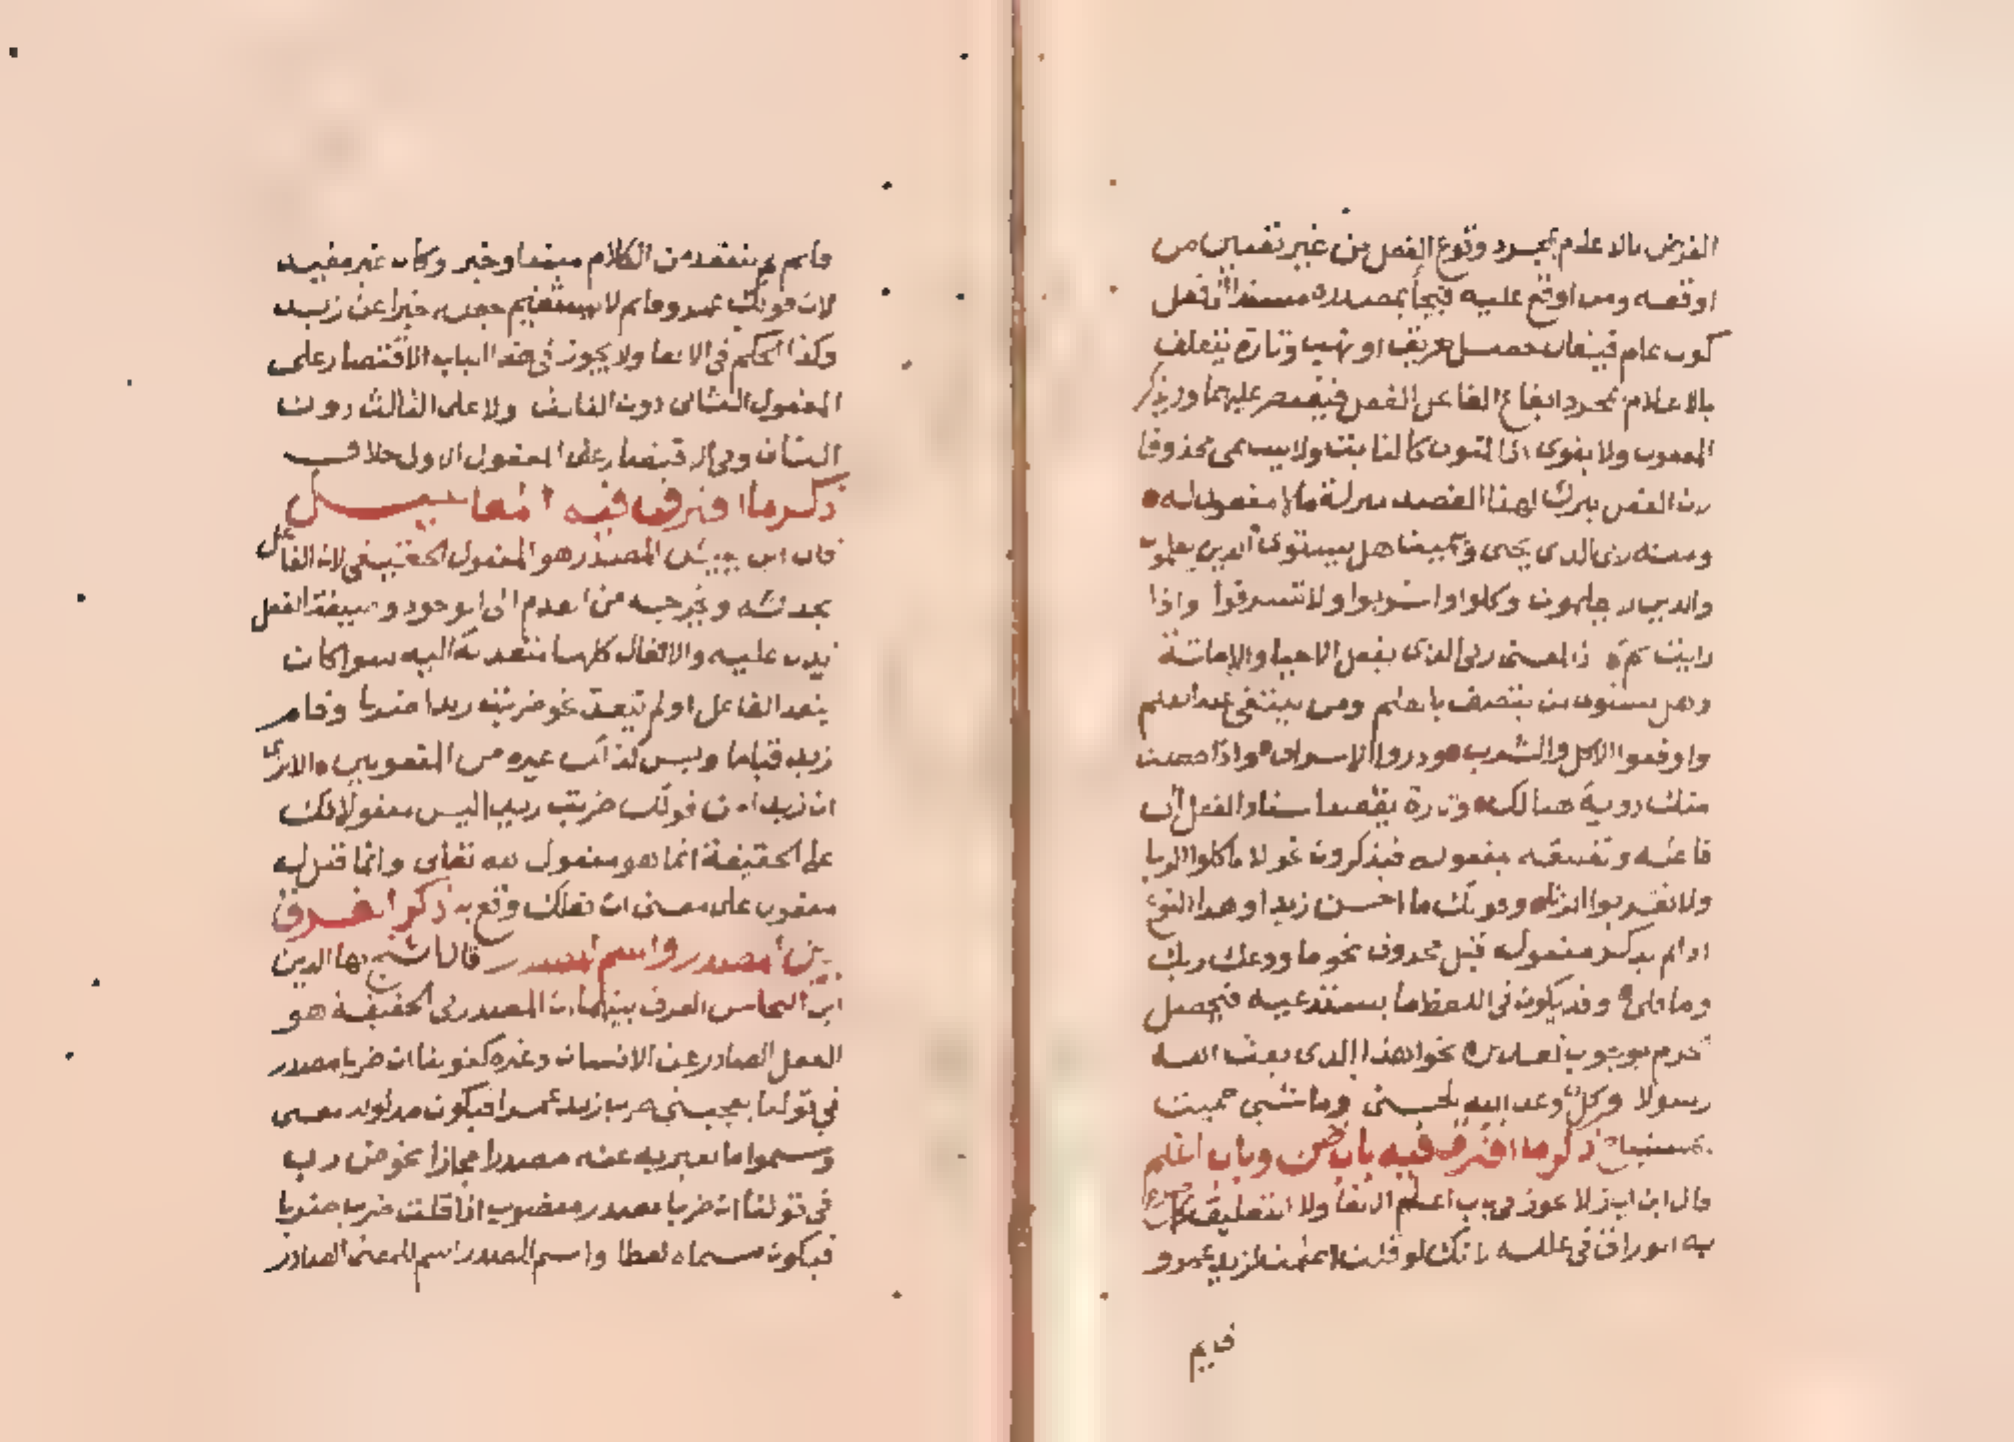 الغرض بالاعلام بمجرد وقوع الفعل من غير تعيين من
اوقعه ومن اوقع عليه فيجأ بمصدره مسندا الى فعل
كون عام فيقال حصل حريق او نهب وتارة يتعلق
بالاعلام بمجرد ايقاع الفاعل الفعل فيقتصر عليهما ولا يذكر
المفعول ولا ينوى اذ المنوى كالثابت ولا يسمى محذوفا
لان الفعل ينزل لهذا القصد منزلة ما لا مفعول له
ومنه ربى الذى يحيى ويميت هل يستوى الذين يعلمون
والذين لا يعلمون وكلوا واشربوا ولا تسرفوا واذا
رايت ثم اذ المعنى ربى الذى يفعل الاحيا والاماتة
وهل يستوى من يتصف بالعلم ومن ينتفى عنه العلم
واوقعوا الاكل والشرب وذروا الاسراف واذا حصلت
منك روية هنالك وتارة يقصد اسناد الفعل الى
فاعله وتعليقه بمفعوله فيذكران نحو لا تاكلوا الربا
ولا تقربوا الزنا وقولك ما احسن زيدا وهذا النوع
اذا لم يذكر مفعوله قيل محذوف نحو ما ودعك ربك
وما قلى وقد يكون فى اللفظ ما يستدعيه فيحصل
الجزم بوجوب تقديره نحو اهذا الذى بعث الله
رسولا وكل وعد الله الحسنى وما شئ حميت
بمستباح ذكر ما افترق فيه باب ظن وباب اعلم
قال ابن اياز لا يجوز فى باب اعلم الالغا ولا التعليق كما صرح
به الوراق فى علله لانك لو قلت اعلمت لزيد عمرو
قايم
قايم لم ينعقد من الكلام مبتدا وخبر وكان غير مفيد
لان قولك عمرو قايم لا يستقيم جعله خبرا عن زيد
وكذا الحكم فى الالغا ولا يجوز فى هذا الباب الاقتصار على
المفعول الثانى دون الثالث ولا على الثالث دون
الثانى وفى الاقتصار على المفعول الاول خلاف
ذكر ما افترق فيه المفاعيل
قال ابن يعيش المصدر هو المفعول الحقيقى لان الفاعل
يحدثه ويخرجه من العدم الى الوجود وصيغة الفعل
تدل عليه والافعال كلها متعدية اليه سوا كان
يتعدى الفاعل او لم يتعد نحو ضربت زيدا ضربا وقام
زيد قياما وليس كذلك غيره من المفعولين الا ترى
ان زيدا من قولك ضربت زيدا ليس مفعولا لك
على الحقيقة انما هو مفعول لله تعالى وانما قيل له
مفعول على معنى ان فعلك وقع به ذكر الفرق
بين المصدر واسم المصدر قال الشيخ بها الدين
ابن النحاس الفرق بينهما ان المصدر فى الحقيقة هو
الفعل الصادر عن الانسان وغيره كقولنا ان ضربا مصدر
فى قولنا يعجبنى ضرب زيد عمرا فيكون مدلوله معنى
وسموا ما يعبر به عنه مصدرا مجازا نحو ض ر ب
فى قولنا ان ضربا مصدر منصوب اذا قلت ضرب ضربا
فيكون مسماه لفظا واسم المصدر اسم للمعنى الصادر